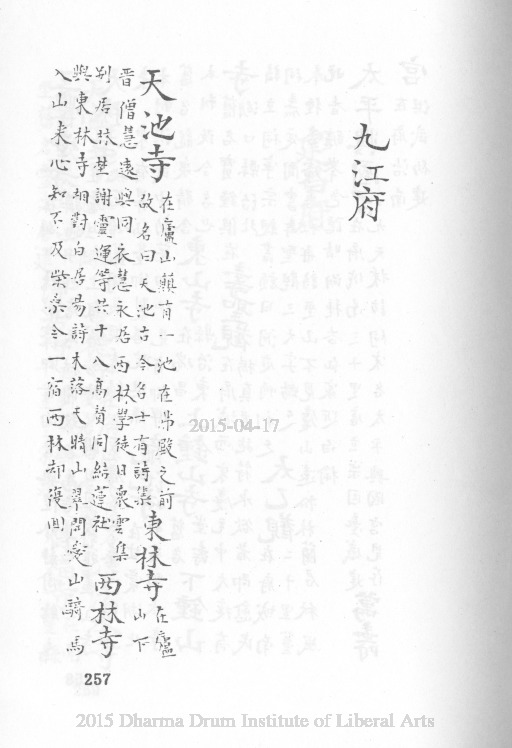 九江府
天池寺
在廬山巔有一池在帝殿之前
故名曰天池古今名士有詩集
東林寺
在廬
山下
晉僧慧遠與同衣慧永居西林學徒日衆雲集
別居林塋謝靈運等共十八高賢同結蓮社
西林寺
與東林寺相對白居易詩木落天晴山翠開愛山騎馬
入山來心知不及柴桑令一宿西林却復回
2015-04-17
257
2015 Dharma Drum Institute of Liberal Arts